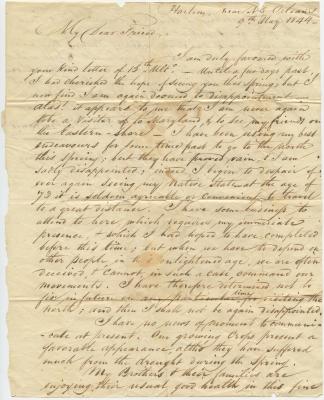 Harlem, near N. Orleans
9th May 1844
My Dear Friend,
I am duly favored with
your kind letter of 15th Ulto. — Until a few days past
I had cherished the hope of seeing you this spring; but I
now find I am again doomed to disappointment —
Alas! it appears to me that I am never again
to be a visiter to Maryland, & to see my friends on
the Eastern-shore — I have been using my best
endeavours for some time past to go to the north
this spring; but they have proved vain & I am
sadly disappointed; indeed I begin to despair of
ever again seeing my Native State at the age of
72 it is seldom agreeable or convenient to travel
to a great distance — I have some business to
attend to here, which requires my immediate
presence & which I had hoped to have completed
before this time; but when we have to depend on
other people in this enlightened age, we are often
deceived, & cannot, in such a case, command our
movements. I have therefore determined not to
fix in future on any particular time visiting the
north; and then I shall not be again disappointed.
I have no news of moment to communi-
-cate at present. Our growing Crops present a
favorable appearance, altho they have suffered
much from the drought during the spring.
My Brothers & their families are
enjoying their usual good health in this fine